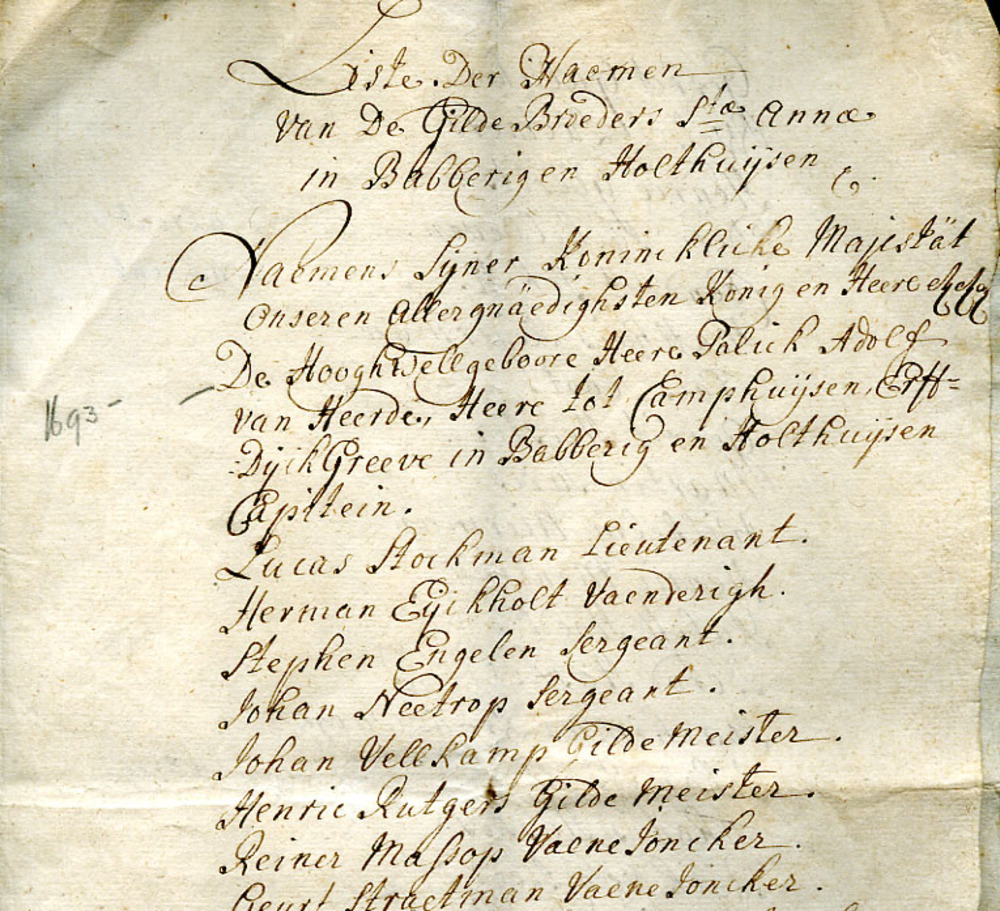 Liste Der Naemen
van De Gilde Broeders Stae Annae
in Babberig en Holthuijsen
Naemens Sijner Koninckliche Majestät
Onseren Allergnäedighsten Konig en Heere etc etc
De Hooghwellgeboore Heere Palick Adolf
van Heerde, Heere tot Camphuijsen, Erff=
DijckGreeve in Babberig en Holthuijsen
1693-
Capitein.
Lucas Stockman Lieutenant.
Herman Eijckholt Vaenderigh.
Stephen Engelen Sergeant.
Johan Neetrop Sergeant.
Johan Vellkamp Gilde Meister.
Henric Rutgers Gilde Meister.
Reiner Massop Vaene Joncker.
Geurt Straetman Vaene Joncker.